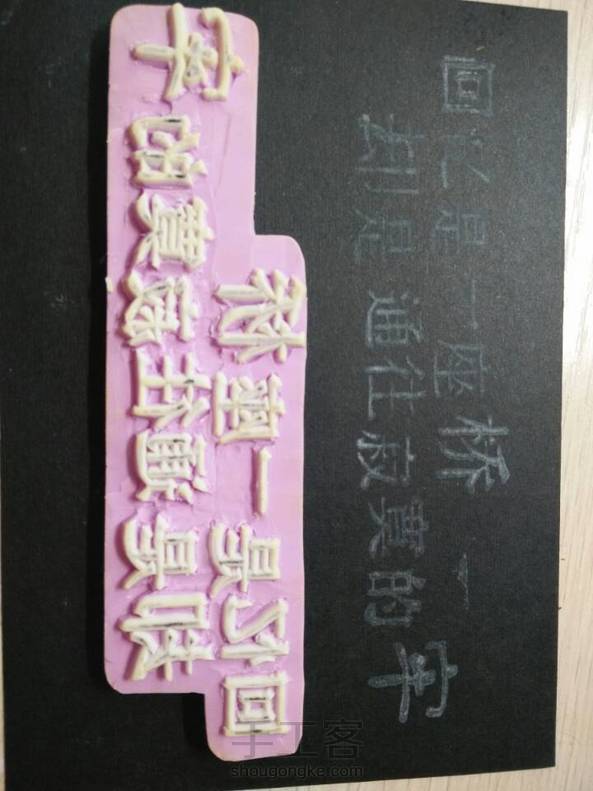 回忆是一座桥
却是通往寂寞的牢
回忆是一座桥
却是通往寂寞的牢
手工客
shougongke.com